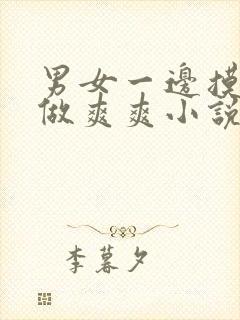 男女一邊摸
做爽爽小說
李暮夕